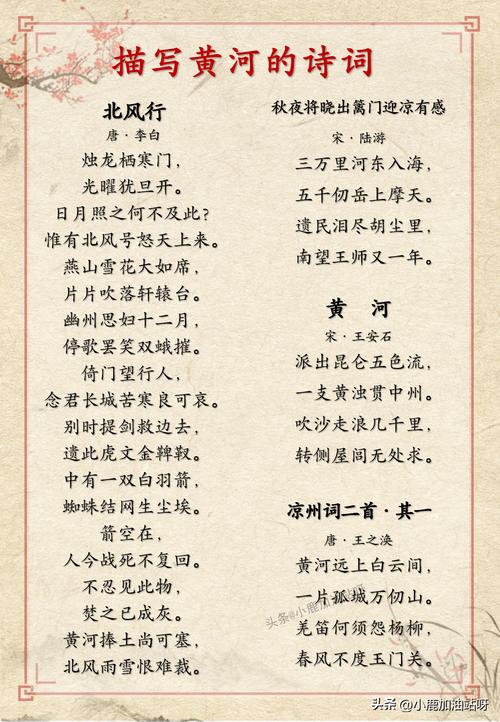 描写黄河的诗词
北风行
唐·李白
烛龙栖寒门，
光曜犹旦开。
日月照之何不及此？
惟有北风号怒天上来。
燕山雪花大如席，
片片吹落轩辕台。
幽州思妇十二月，
停歌罢笑双蛾摧。
倚门望行人，
念君长城苦寒良可哀。
别时提剑救边去，
遗此虎文金鞞靫。
中有一双白羽箭，
蜘蛛结网生尘埃。
箭空在，
人今战死不复回。
不忍见此物，
焚之已成灰。
黄河捧土尚可塞，
北风雨雪恨难裁。
秋夜将晓出篱门迎凉有感
宋·陆游
三万里河东入海，
五千仞岳上摩天。
遗民泪尽胡尘里，
南望王师又一年。
黄 河
宋·王安石
派出昆仑五色流，
一支黄浊贯中州。
吹沙走浪几千里，
转侧屋闾无处求。
凉州词二首·其一
唐·王之涣
黄河远上白云间，
一片孤城万仞山。
羌笛何须怨杨柳，
春风不度玉门关。
头条@小鹿加油站呀
头条 @小鹿加油站呀